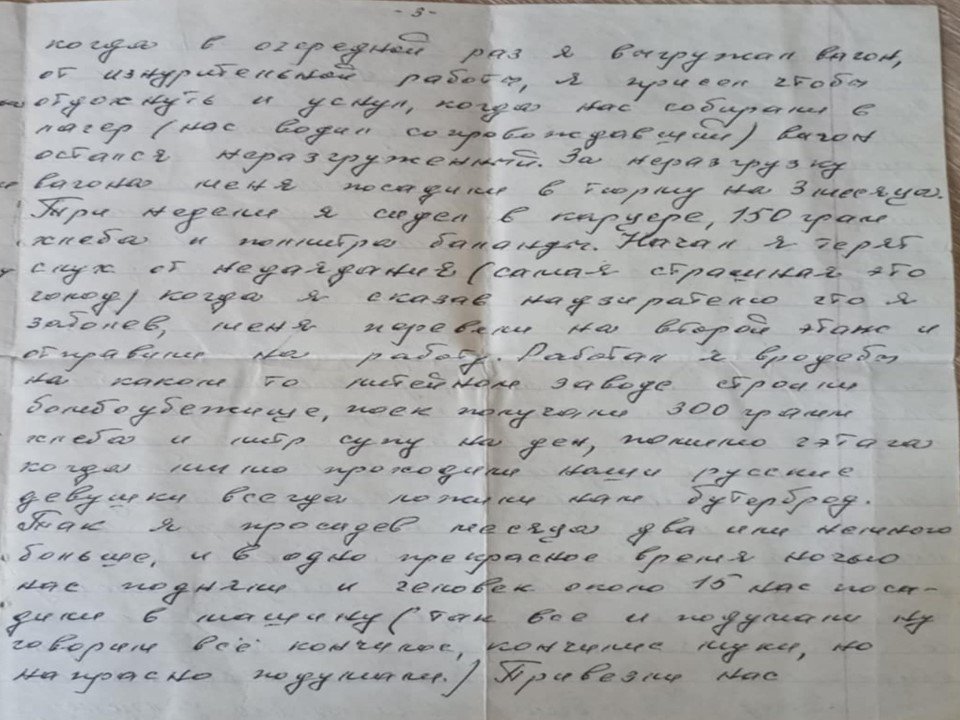 - 3 -
когда в очередной раз я выгружал вагон,
от изнурительной работы, я присел чтобы
отдохнуть и уснул, когда нас собирали в
лагер (нас водил сопровождавший) вагон
остался неразгруженный. За неразгрузку
вагона меня посадили в тюрму на 3 месяца.
Три недели я сидел в карцере, 150 грам
хлеба и поллитра баланды. Начал я терят
слух от недаядания (самая страшная это
голод) когда я сказав надзирателю что я
заболев, меня перевели на второй этаж и
отправили на работу. Работал я вродебы
на каком то литейном заводе строили
бомбоубежище, паек получали 300 грамм
хлеба и литр супу на ден, помимо гэтага
когда мимо проходили наши русские
девушки всегда ложили нам бутерброд.
Так я просидев месяца два или немного
больше, и в одно прекрасное время ночью
нас подняли и человек около 15 нас поса-
дили в машину (так все и подумали ну
говорим всё кончилос, кончилис муки, но
напрасно подумали.) Привезли нас